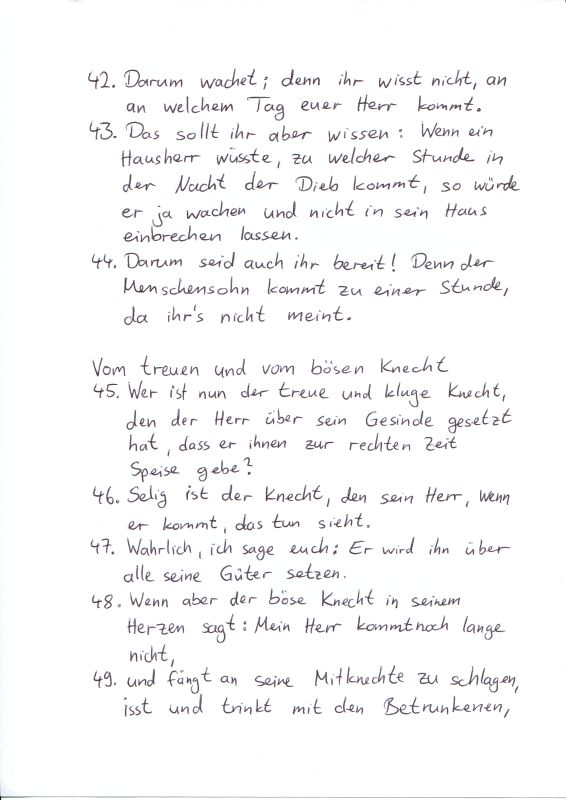 42. Darum wachet; denn ihr wisst nicht, an
an welchem Tag euer Herr kommt.
43. Das sollt ihr aber wissen: Wenn ein
Hausherr wüsste, zu welcher Stunde in
der Nacht der Dieb kommt, so würde
er ja wachen und nicht in sein Haus
einbrechen lassen.
44. Darum seid auch ihr bereit! Denn der
Menschensohn kommt zu einer Stunde,
da ihr's nicht meint.
Vom treuen und vom bösen Knecht
45. Wer ist nun der treue und kluge Knecht,
den der Herr über sein Gesinde gesetzt
hat, dass er ihnen zur rechten Zeit
Speise gebe?
46. Selig ist der Knecht, den sein Herr, wenn
er kommt, das tun sieht.
47. Wahrlich, ich sage euch: Er wird ihn über
alle seine Güter setzen.
48. Wenn aber der böse Knecht in seinem
Herzen sagt: Mein Herr kommt noch lange
nicht,
49. und fängt an seine Mitknechte zu schlagen,
isst und trinkt mit den Betrunkenen,